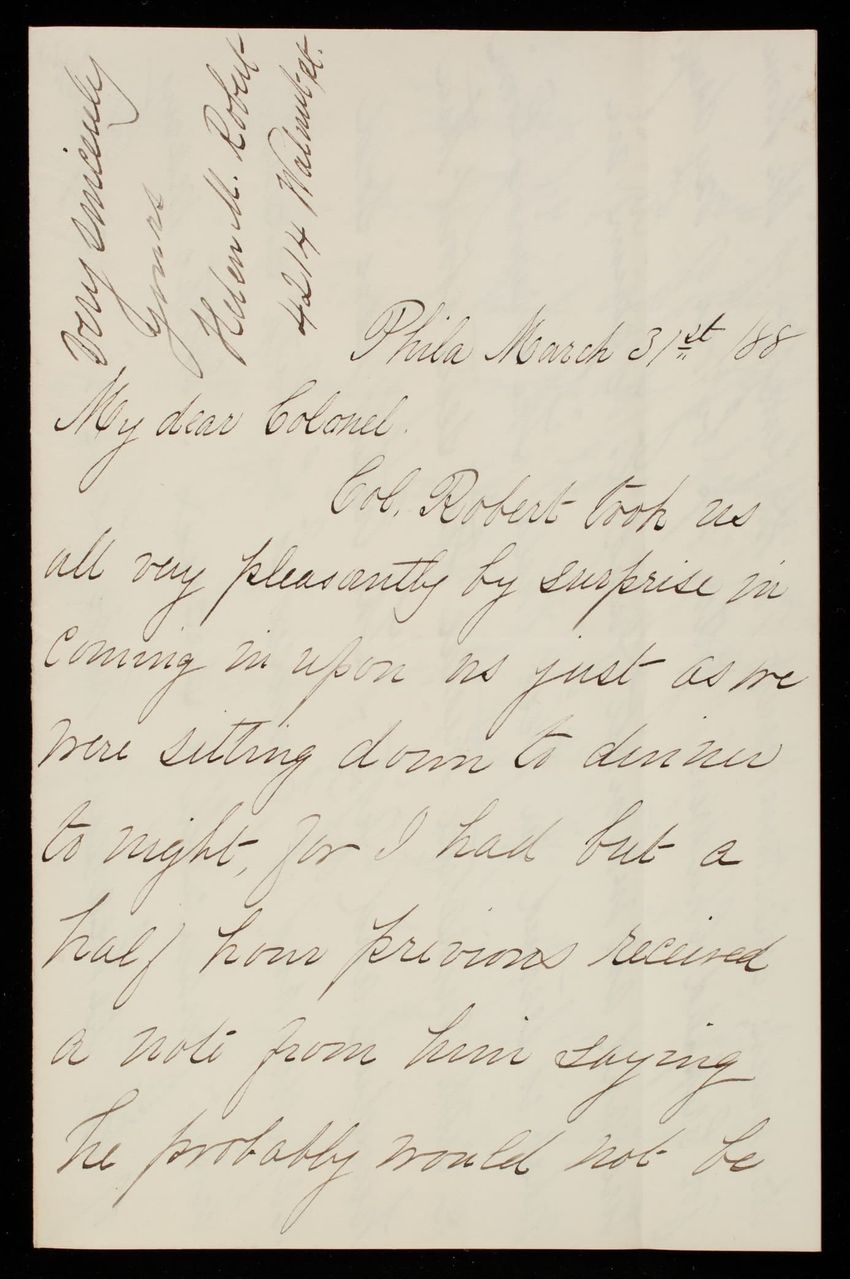 Very sincerely
yours
Helen M. Robert
4214 Walnut St.
Phila March 31st /88
My dear Colonel.
Col. Robert took us
all very pleasantly by surprise in
coming in upon us just as we
were sitting down to dinner
to night, for I had but a
half hour previous received
a note from him saying
he probably would not be